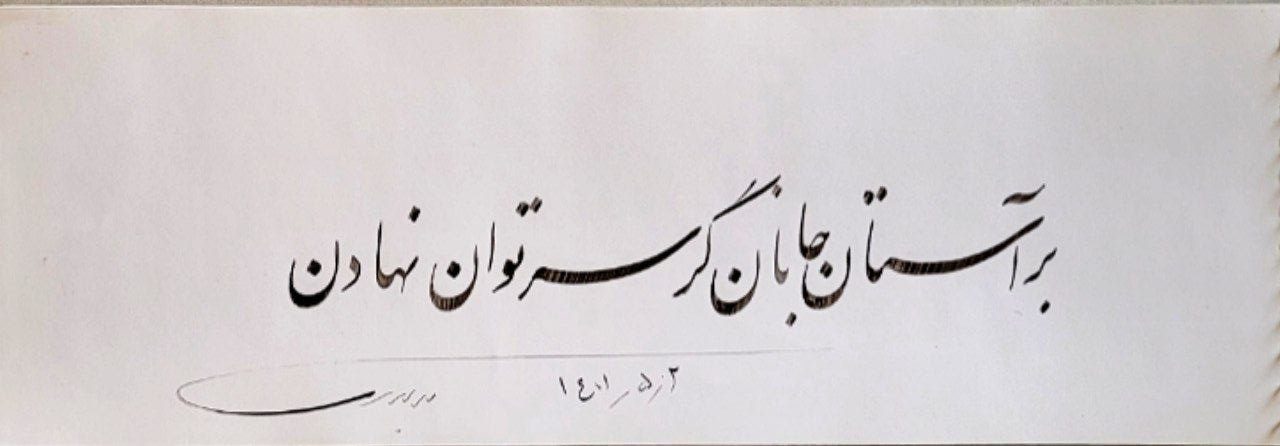 بر آستان جانان گر سر توان نهادن
۱۴۰۱ر۵ر۲